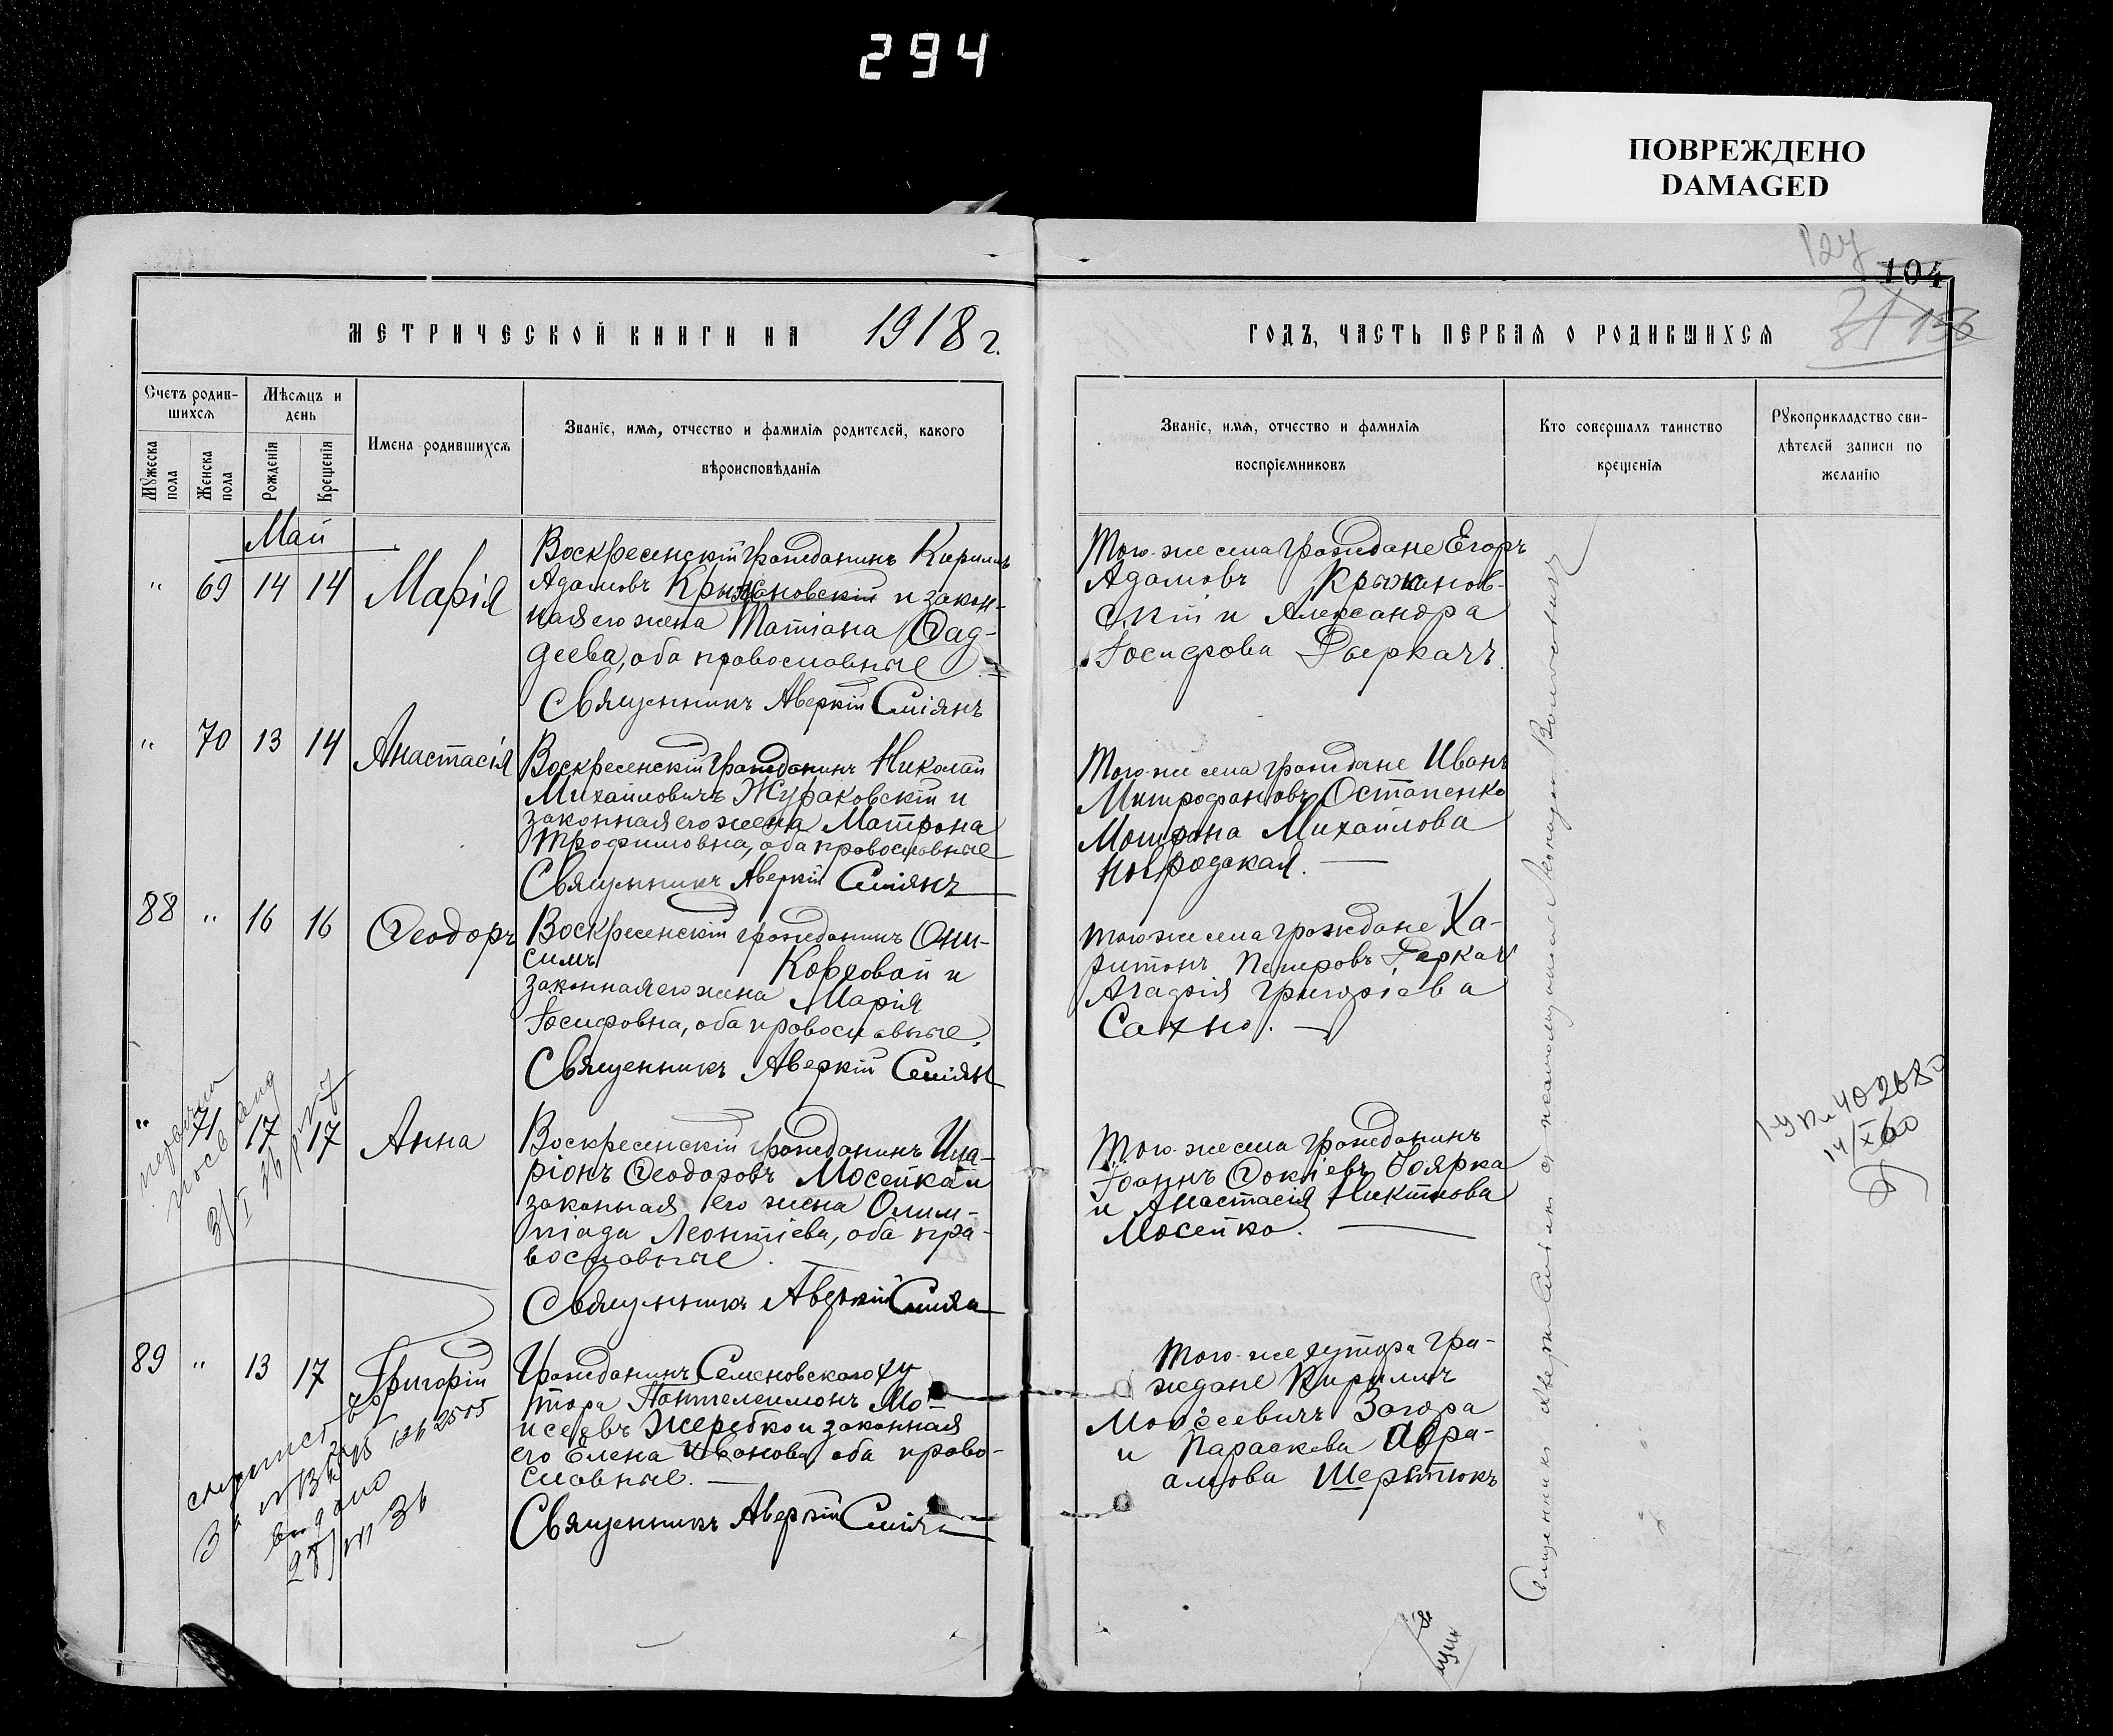 294
ПОВРЕЖДЕНО
DAMAGED
104
МЕТРИЧЕСКОЙ КНИГИ НА 1918 г.
ГОДЪ, ЧАСТЬ ПЕРВАЯ О РОДИВШИХСЯ
Счетъ родив-
шихся
Мѣсяцъ и
день
Мужеска
пола
Женска
пола
Рожденія
Крещенія
Имена родившихся
Званіе, имя, отчество и фамилія родителей, какого
вѣроисповѣданія
Званіе, имя, отчество и фамилія
воспріемниковъ
Кто совершалъ таинство
крещенія
Рукоприкладство сви-
дѣтелей записи по
желанію
Май
" 69 14 14 Марія
Воскресенскій гражданинъ Кириллъ
Адамовъ Крыжановскій и закон-
ная его жена Татіана Ѳад-
деева, оба православные
Священникъ Аверкій Сміянъ
Того-же села граждане Егоръ
Адамовъ Крыжанов-
скій и Александра
Іосифова Деркачъ.
" 70 13 14 Анастасія
Воскресенскій гражданинъ Николай
Михайловичъ Жураковскій и
законная его жена Матрона
Трофимовна, оба православные
Священникъ Аверкій Сміянъ
Того-же села граждане Иванъ
Митрофановъ Остапенко
Матрона Михайлова
88 " 16 16 Ѳеодоръ
Воскресенскій гражданинъ Они-
симъ Корховой и
законная его жена Марія
Іосифовна, оба православные.
Священникъ Аверкій Сміян
Того же села граждане Ха-
ритонъ Петровъ Деркач
Агафія Григоріева
Сахно.
" 71 17 17 Анна
Воскресенскій гражданинъ Ила-
ріонъ Ѳеодоровъ Мосейка и
законная его жена Олим-
піада Леонтіева, оба пра-
вославные.
Священникъ Аверкій Сміян
Того-же села гражданинъ
Іоаннъ Ѳокіевъ Боярка
и Анастасія Никитова
Мосейко.
89 " 13 17 Григорій
Гражданинъ Семеновскаго ху
тора Пантелеимонъ Мо-
исеевъ Жеребко и законная
его Елена Иванова, оба право-
славные.
Священникъ Аверкій Сміян
Того-же хутора гра-
ждане Кириллъ
Моисеевичъ Загора
и Параскева Авра-
амова Шерстюкъ
выдано
14/X 60